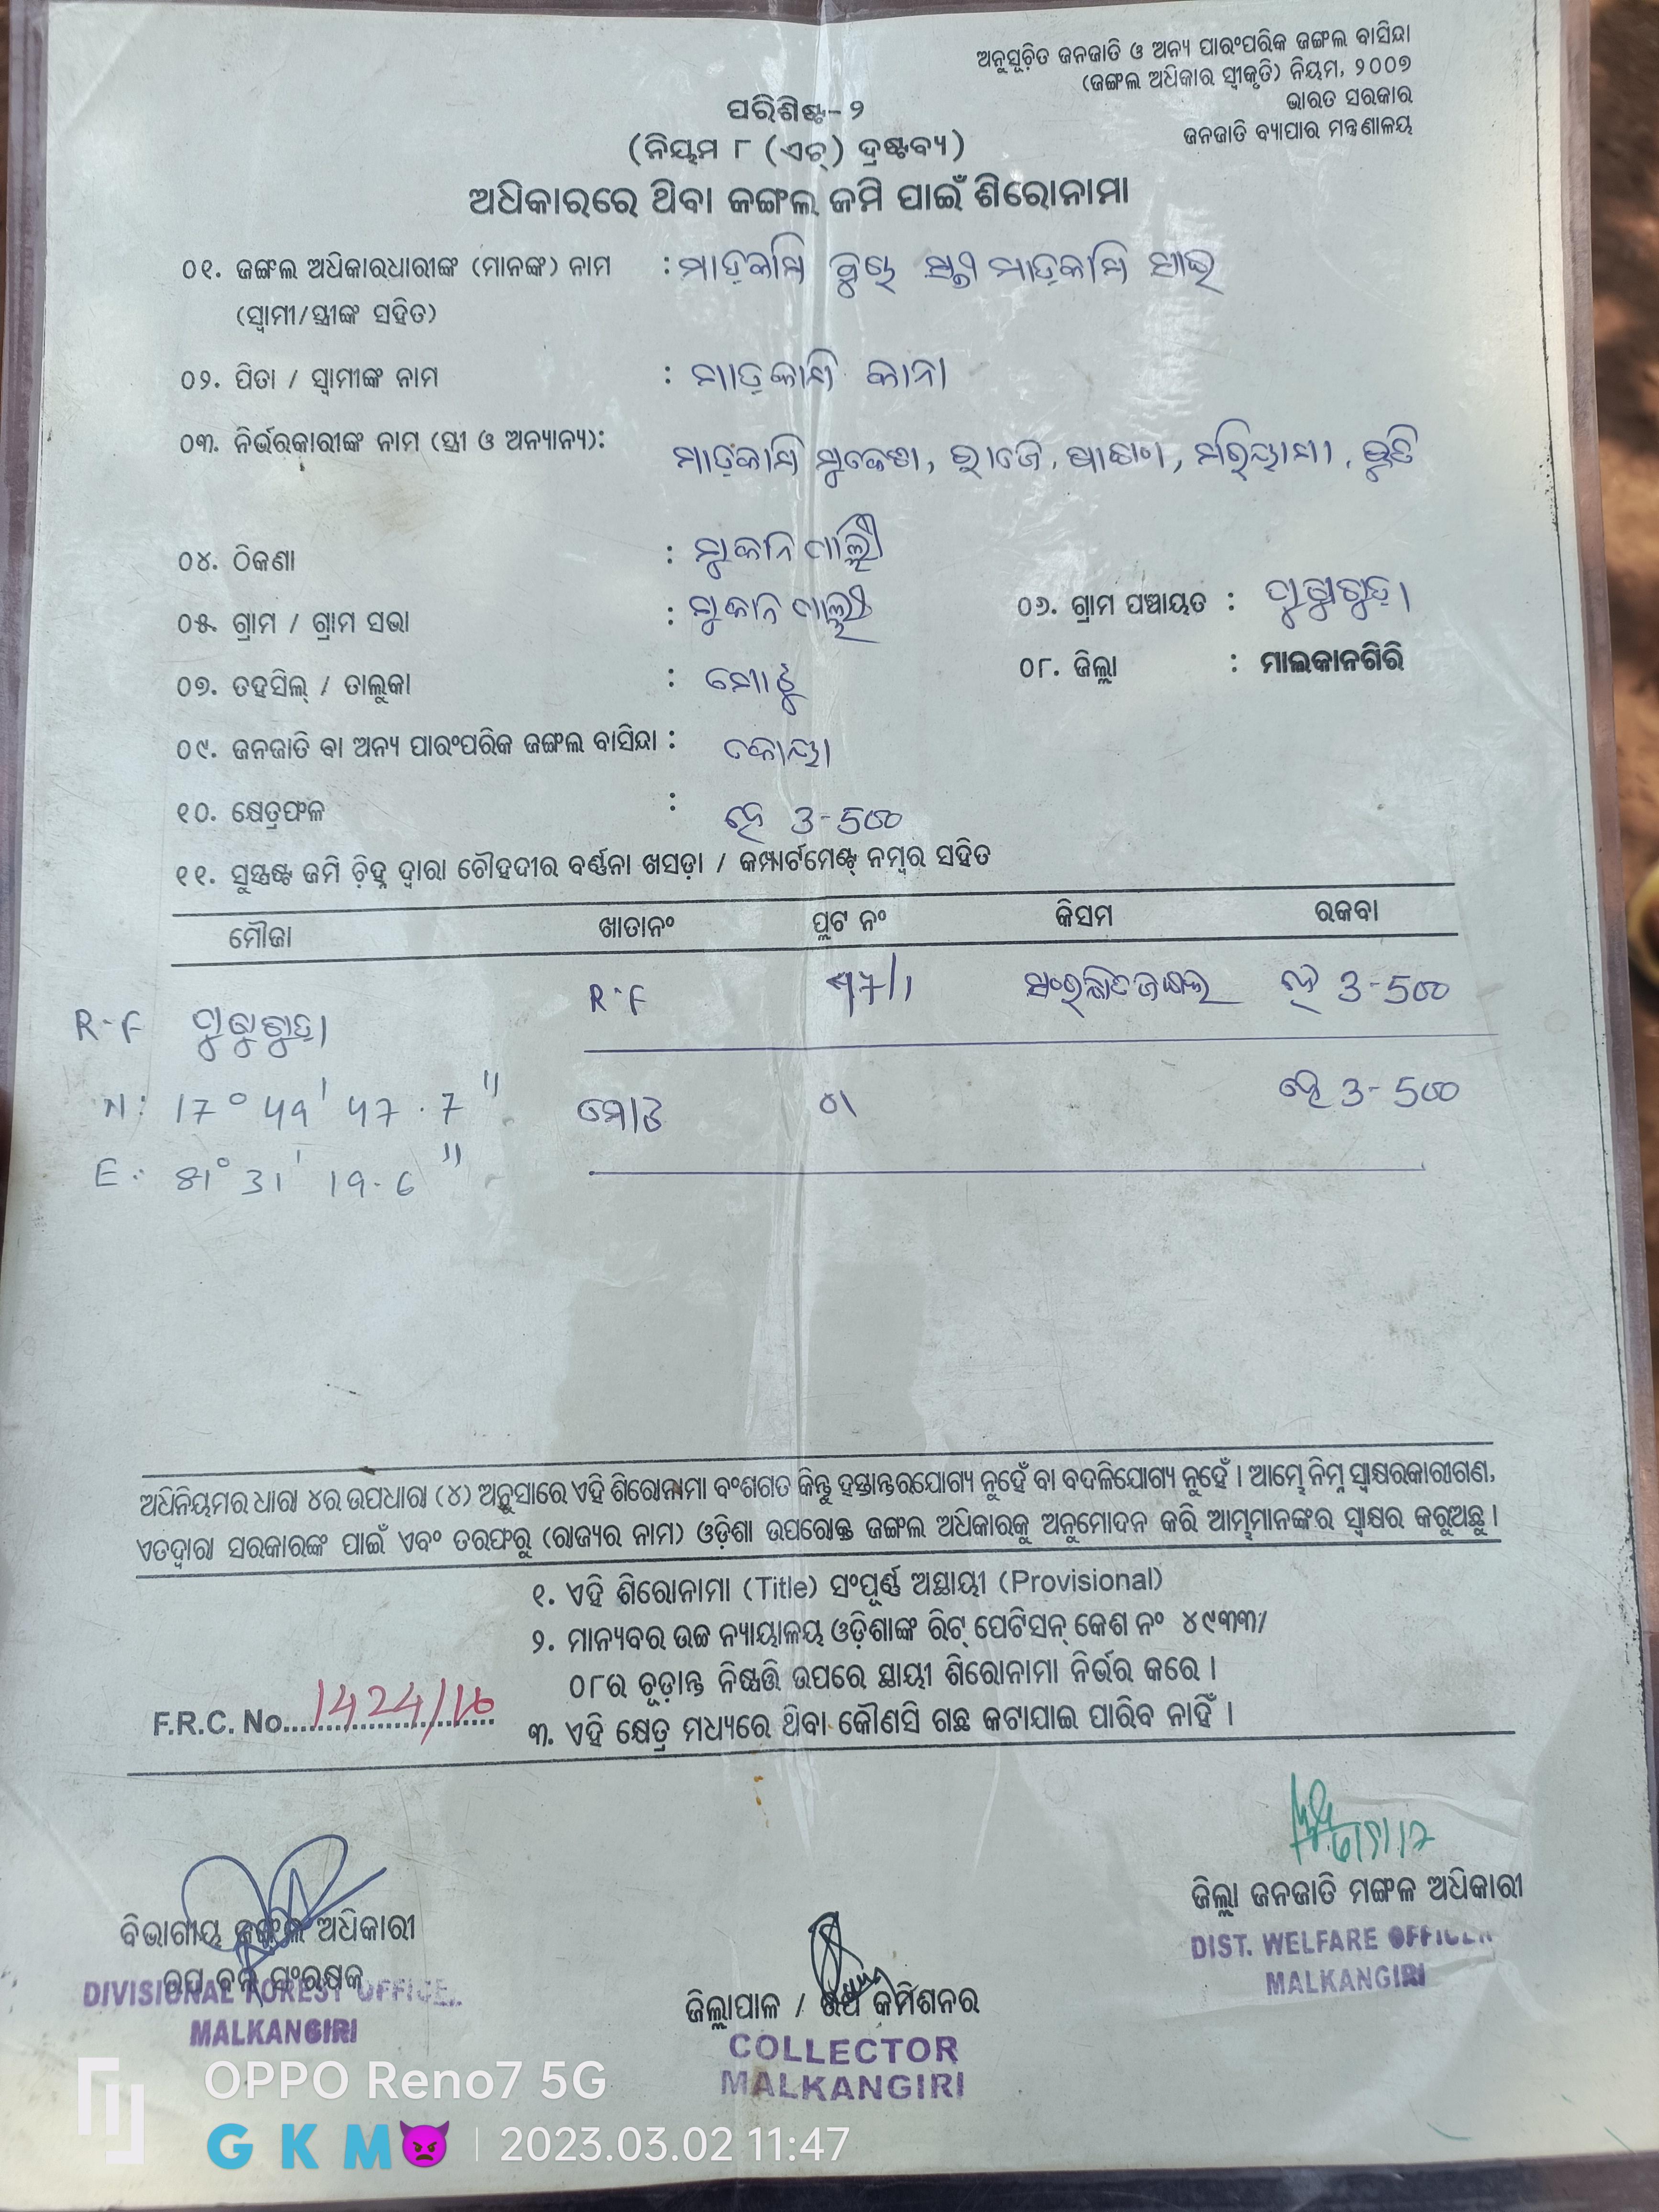 ଅନୁସୂଚିତ ଜନଜାତି ଓ ଅନ୍ୟ ପାରଂପରିକ ଜଙ୍ଗଲ ବାସିନ୍ଦା
(ଜଙ୍ଗଲ ଅଧିକାର ସ୍ୱୀକୃତି) ନିୟମ, ୨୦୦୭
ଭାରତ ସରକାର
ଜନଜାତି ବ୍ୟାପାର ମନ୍ତ୍ରଣାଳୟ
ପରିଶିଷ୍ଟ-୨
(ନିୟମ ୮ (ଏଚ୍) ଦ୍ରଷ୍ଟବ୍ୟ)
ଅଧିକାରରେ ଥିବା ଜଙ୍ଗଲ ଜମି ପାଇଁ ଶିରୋନାମା
୦୧. ଜଙ୍ଗଲ ଅଧିକାରଧାରୀଙ୍କ (ମାନଙ୍କ) ନାମ : ମାଡ଼କାମି ମାଡ଼କାମି
(ସ୍ୱାମୀ/ସ୍ତ୍ରୀଙ୍କ ସହିତ)
୦୨. ପିତା / ସ୍ୱାମୀଙ୍କ ନାମ : ମାଡ଼କାମି କାନା
୦୩. ନିର୍ଭରକାରୀଙ୍କ ନାମ (ସ୍ତ୍ରୀ ଓ ଅନ୍ୟାନ୍ୟ): ମାଡ଼କାମି ମୁକେଶ,
୦୪. ଠିକଣା :
୦୫. ଗ୍ରାମ / ଗ୍ରାମ ସଭା : ୦୬. ଗ୍ରାମ ପଞ୍ଚାୟତ :
୦୭. ତହସିଲ୍ / ତାଲୁକା : ମୋଟୁ ୦୮. ଜିଲ୍ଲା : ମାଲକାନଗିରି
୦୯. ଜନଜାତି ବା ଅନ୍ୟ ପାରଂପରିକ ଜଙ୍ଗଲ ବାସିନ୍ଦା : କୋୟା
୧୦. କ୍ଷେତ୍ରଫଳ : ହେ 3-500
୧୧. ସୁସ୍ପଷ୍ଟ ଜମି ଚିହ୍ନ ଦ୍ୱାରା ଚୌହଦୀର ବର୍ଣ୍ଣନା ଖସଡ଼ା / କମ୍ପାର୍ଟମେଣ୍ଟ୍ ନମ୍ବର ସହିତ
ମୌଜା ଖାତାନଂ ପ୍ଲଟ ନଂ କିସମ ରକବା
R-F R-F ସଂରକ୍ଷିତ ଜଙ୍ଗଲ ହେ 3-500
N: 17° 49' 47.7" ମୋଟ ହେ 3-500
E: 81° 31' 19.6"
ଅଧିନିୟମର ଧାରା ୪ର ଉପଧାରା (୪) ଅନୁସାରେ ଏହି ଶିରୋନାମା ବଂଶଗତ କିନ୍ତୁ ହସ୍ତାନ୍ତରଯୋଗ୍ୟ ନୁହେଁ ବା ବଦଳିଯୋଗ୍ୟ ନୁହେଁ । ଆମ୍ଭେ ନିମ୍ନ ସ୍ୱାକ୍ଷରକାରୀଗଣ,
ଏତଦ୍ୱାରା ସରକାରଙ୍କ ପାଇଁ ଏବଂ ତରଫରୁ (ରାଜ୍ୟର ନାମ) ଓଡ଼ିଶା ଉପରୋକ୍ତ ଜଙ୍ଗଲ ଅଧିକାରକୁ ଅନୁମୋଦନ କରି ଆମ୍ଭମାନଙ୍କର ସ୍ୱାକ୍ଷର କରୁଅଛୁ ।
୧. ଏହି ଶିରୋନାମା (Title) ସଂପୂର୍ଣ୍ଣ ଅସ୍ଥାୟୀ (Provisional)
୨. ମାନ୍ୟବର ଉଚ୍ଚ ନ୍ୟାୟାଳୟ ଓଡ଼ିଶାଙ୍କ ରିଟ୍ ପେଟିସନ୍ କେଶ ନଂ ୪୯୩୩/
୦୮ର ଚୂଡ଼ାନ୍ତ ନିଷ୍ପତ୍ତି ଉପରେ ସ୍ଥାୟୀ ଶିରୋନାମା ନିର୍ଭର କରେ ।
F.R.C. No. 1424/16
୩. ଏହି କ୍ଷେତ୍ର ମଧ୍ୟରେ ଥିବା କୌଣସି ଗଛ କଟାଯାଇ ପାରିବ ନାହିଁ ।
ଜିଲ୍ଲା ଜନଜାତି ମଙ୍ଗଳ ଅଧିକାରୀ
DIST. WELFARE OFFICER
MALKANGIRI
ବିଭାଗୀୟ ଜଙ୍ଗଲ ଅଧିକାରୀ
ଉପ ବନ ସଂରକ୍ଷକ
DIVISIONAL FOREST OFFICER
MALKANGIRI
ଜିଲ୍ଲାପାଳ / ଉପ କମିଶନର
COLLECTOR
MALKANGIRI
OPPO Reno7 5G
G K M | 2023.03.02 11:47